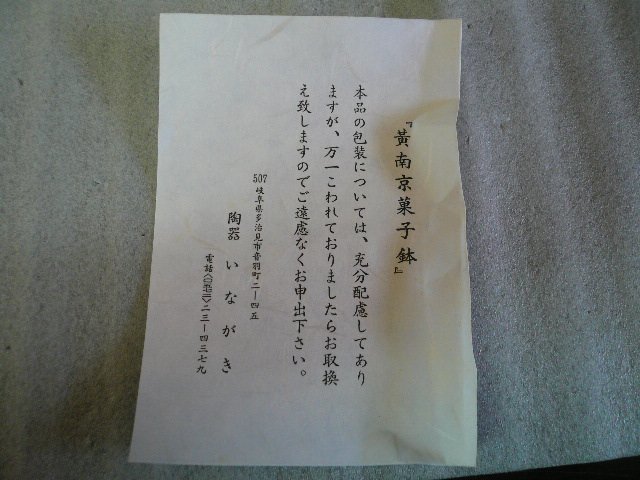 『黄南京菓子鉢』
本品の包装については、充分配慮してあり
ますが、万一こわれておりましたらお取換
え致しますのでご遠慮なくお申出下さい。
507 岐阜県多治見市音羽町二ー四五
陶器 いながき
電話(〇五七二)二三ー四三七九